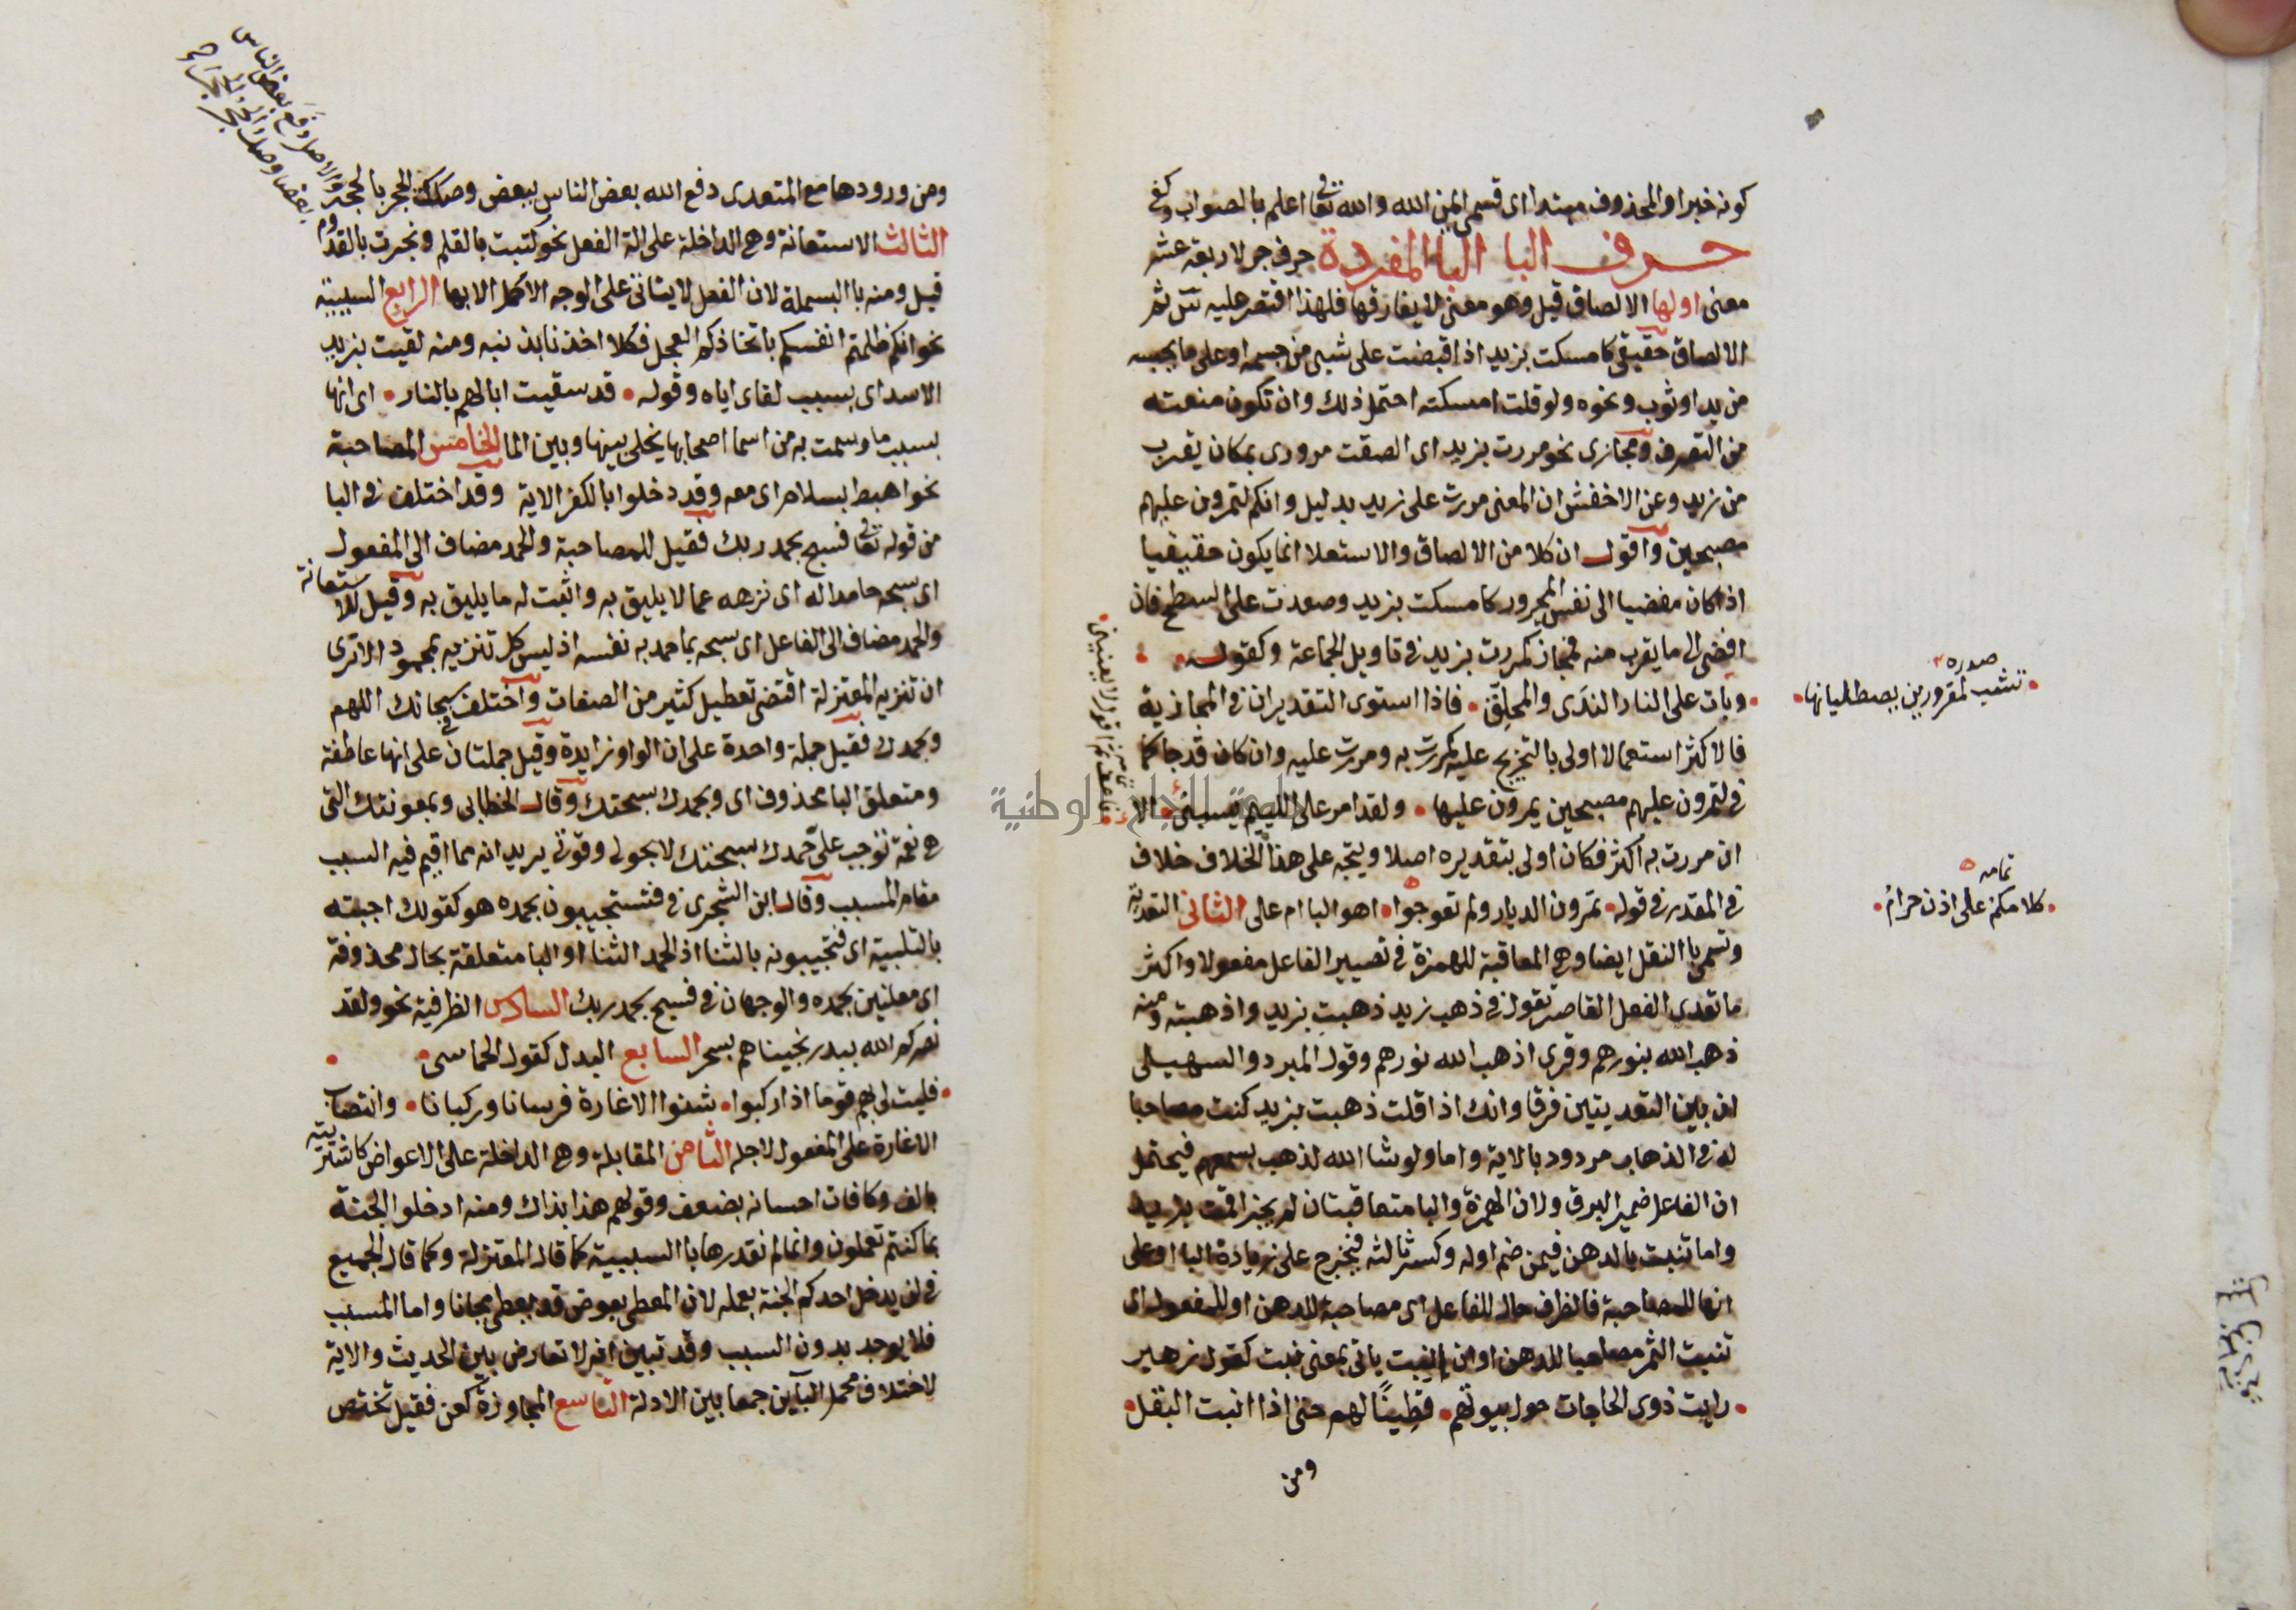 كونه خبرا والمحذوف مبتدا اى قسمى ايمن الله والله تعالى اعلم بالصواب
حرف البا البا المفردة حرف جر لاربعة عشر
معنى اولها الالصاق قيل وهو معنى لا يفارقها فلهذا اقتصر عليه س ثم
الالصاق حقيقى كامسكت بزيد اذا قبضت على شىء من جسمه او على ما يحبسه
من يد او ثوب ونحوه ولو قلت امسكته احتمل ذلك وان تكون منعته
من التصرف ومجازى نحو مررت بزيد اى الصقت مرورى بمكان يقرب
من زيد وعن الاخفش ان المعنى مررت على زيد بدليل وانكم لتمرون عليهم
مصبحين واقول ان كلا من الالصاق والاستعلا انما يكون حقيقيا
اذا كان مفضيا الى نفس المجرور كامسكت بزيد وصعدت على السطح فان
افضى الى ما يقرب منه فمجاز كمررت بزيد فى تاويل الجماعة وكقوله
وبات على النار الندى والمحلق فاذا استوى التقديران فى المجازية
صدره تشب لمقرورين يصطليانها
فالاكثر استعمالا اولى بالتخريج عليه كمررت به ومررت عليه وان كان قد جا كما
فى لتمرون عليهم مصبحين يمرون عليها ولقد امر على اللييم يسبنى الا
ان مررت به اكثر فكان اولى بتقديره اصلا ويتجه على هذا الخلاف خلاف
فى المقدر فى قوله تمرون الديار ولم تعوجوا اهو البا ام على الثانى التعدية
تمامه كلامكم على اذن حرام
وتسمى با النقل ايضا وهى المعاقبة للهمزة فى تصيير الفاعل مفعولا واكثر
ما تعدى الفعل القاصر تقول فى ذهب زيد ذهبت بزيد واذهبته ومنه
ذهب الله بنورهم وقرى اذهب الله نورهم وقول المبرد والسهيلى
ان بين التعديتين فرقا وانك اذا قلت ذهبت بزيد كنت مصاحبا
له فى الذهاب مردود بالاية واما ولو شا الله لذهب بسمعهم فيحتمل
ان الفاعل ضمير البرق ولان الهمزة والبا متعاقبتان لم يجز اقمت بزيد
واما تنبت بالدهن فيمن ضم اوله وكسر ثالثه فيخرج على زيادة البا او على
انها للمصاحبة فالظرف حال للفاعل اى مصاحبة للدهن او للمفعول اى
تنبت الثمر مصاحبا للدهن او ان انبت ياتى بمعنى نبت كقول زهير
رايت ذوى الحاجات حول بيوتهم قطينا لهم حتى اذا انبت البقل
ومن
ومن ورودها مع المتعدى دفع الله بعض الناس ببعض وصككت الحجر بالحجر
والاصل دفع بعض الناس
بعضا وصك الحجر الحجر
الثالث الاستعانة وهى الداخلة على الة الفعل نحو كتبت بالقلم ونجرت بالقدوم
قيل ومنه با البسملة لان الفعل لا يتاتى على الوجه الاكمل الا بها الرابع السببية
نحو انكم ظلمتم انفسكم باتخاذكم العجل فكلا اخذنا بذنبه ومنه لقيت بزيد
الاسد اى بسبب لقاى اياه وقوله قد سقيت ابالهم بالنار اى انها
بسبب ما وسمت به من اسما اصحابها يخلى بينها وبين الما الخامس المصاحبة
نحو اهبط بسلام اى معه وقد دخلوا بالكفر الاية وقد اختلف فى البا
من قوله تعالى فسبح بحمد ربك فقيل للمصاحبة والحمد مضاف الى المفعول
اى سبحه حامدا له اى نزهه عما لا يليق به واثبت له ما يليق به وقيل للاستعانة
والحمد مضاف الى الفاعل اى سبحه بما حمد به نفسه اذ ليس كل تنزيه بمحمود الا ترى
ان تنزيه المعتزلة اقتضى تعطيل كثير من الصفات واختلف فى سبحانك اللهم
وبحمدك فقيل جملة واحدة على ان الواو زايدة وقيل جملتان على انها عاطفة
ومتعلق البا محذوف اى وبحمدك سبحتك وقال الخطابى وبمعونتك التى
هى نعمة توجب على حمدك سبحتك لا بحولى وقوتى يريد انه مما اقيم فيه السبب
مقام المسبب وقال ابن الشجرى فى فتستجيبون بحمده هو كقولك اجبته
بالتلبية اى فتجيبونه بالثنا اذ الحمد الثنا او البا متعلقة بحال محذوفة
اى معلنين بحمده والوجهان فى فسبح بحمد ربك السادس الظرفية نحو ولقد
نصركم الله ببدر نجيناهم بسحر السابع البدل كقول الحماسى
فليت لى بهم قوما اذا ركبوا شنوا الاغارة فرسانا وركبانا وانتصاب
الاغارة على المفعول لاجله الثامن المقابلة وهى الداخلة على الاعواض كاشتريته
بالف وكافات احسانه بضعف وقولهم هذا بذاك ومنه ادخلوا الجنة
بما كنتم تعملون وانما لم نقدرها با السببية كما قال المعتزلة وكما قال الجميع
فى لن يدخل احدكم الجنة بعمله لان المعطى بعوض قد يعطى مجانا واما المسبب
فلا يوجد بدون السبب وقد تبين انه لا تعارض بين الحديث والاية
لاختلاف محمل الباين جمعا بين الادلة التاسع المجاوزة كعن فقيل تختص